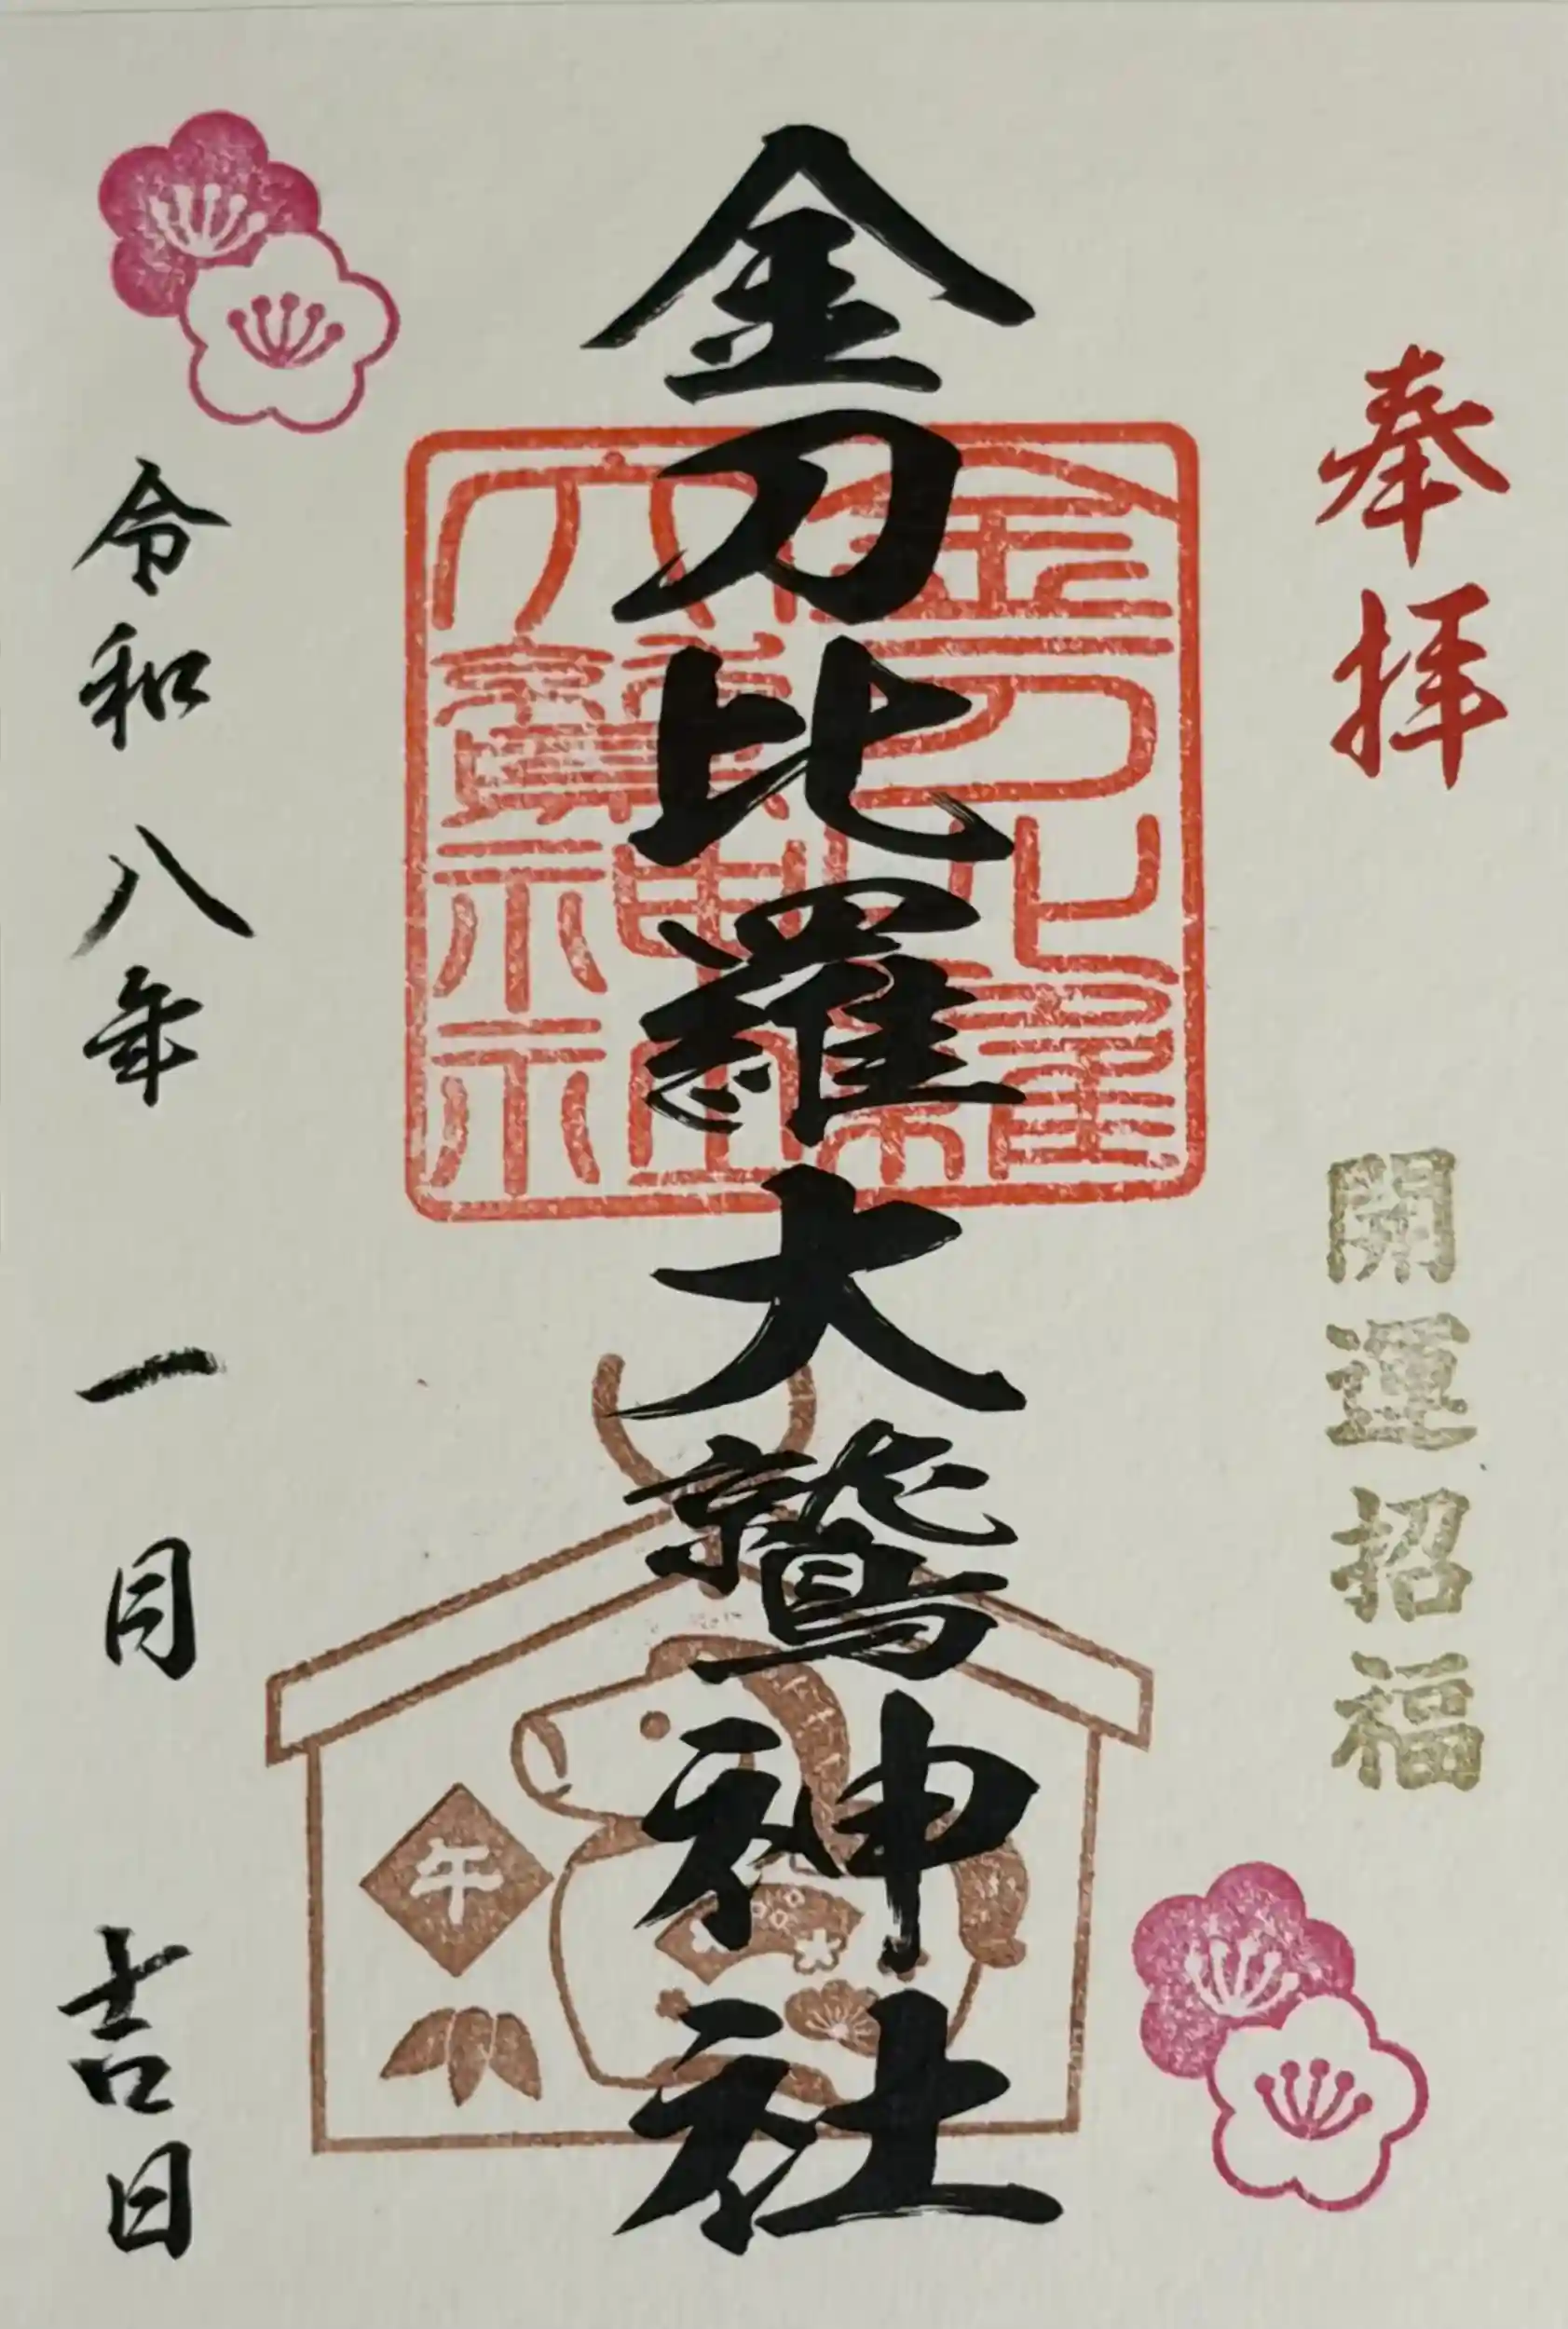 奉拝
開運招福
金刀比羅大鷲神社
金刀比羅大鷲神社
午
令和八年 一月 吉日